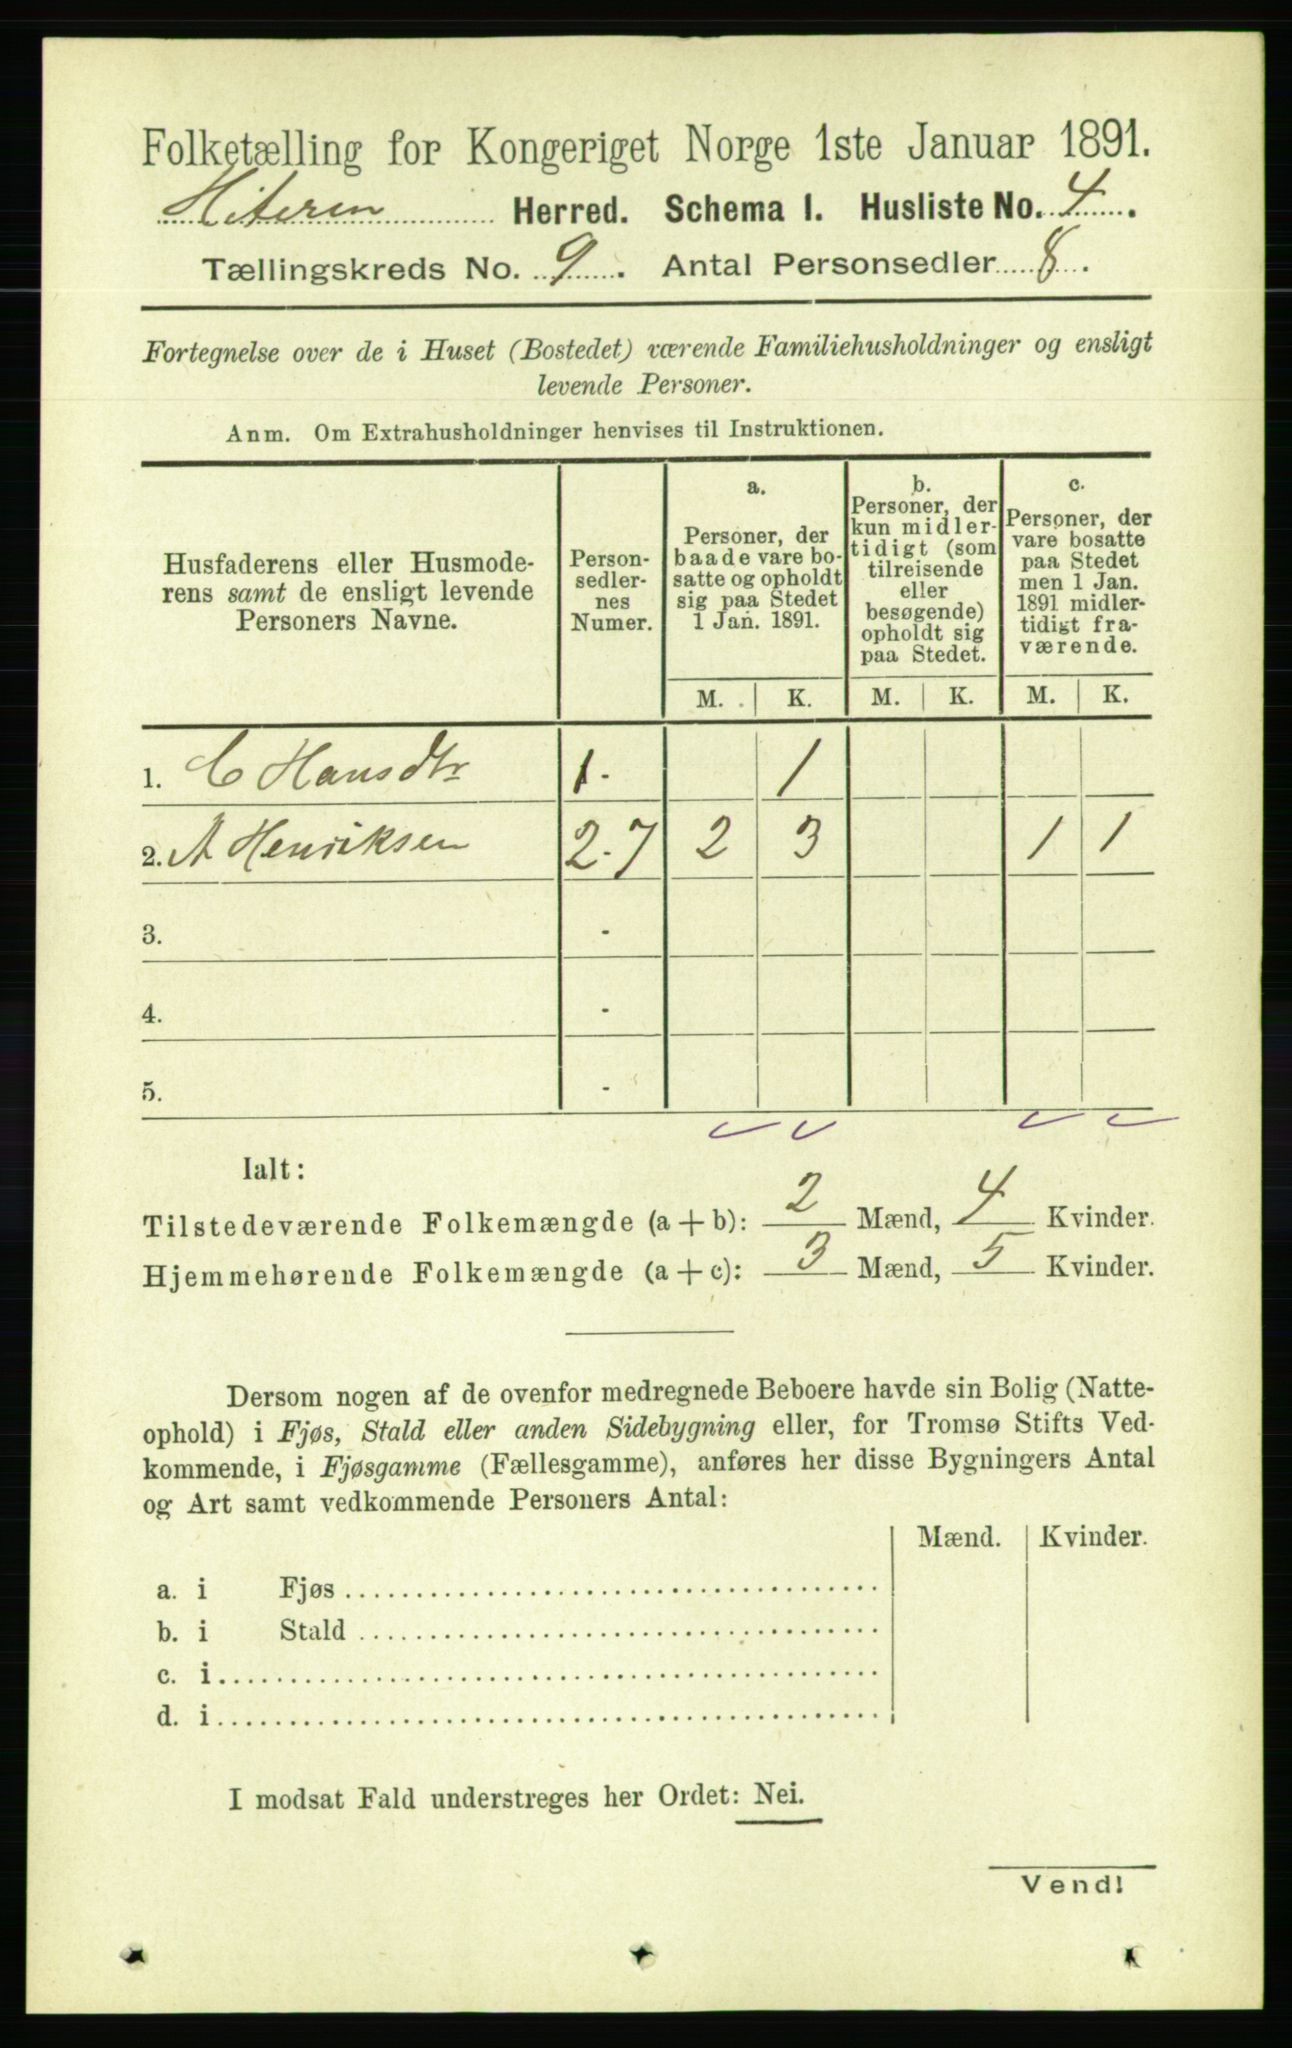 Folketælling for Kongeriget Norge 1ste Januar 1891.
Hiteren Herred. Schema 1. Husliste No. 4.
Tællingskreds No. 9. Antal Personsedler 8.
Fortegnelse over de i Huset (Bostedet) værende Familiehusholdninger og ensligt
levende Personer.
Anm. Om Extrahusholdninger henvises til Instruktionen.
Husfaderens eller Husmode-
rens samt de ensligt levende
Personers Navne.
Person-
sedler-
nes
Numer.
a.
Personer, der
baade vare bo-
satte og opholdt
sig paa Stedet
1 Jan. 1891.
b.
Personer, der
kun midler-
tidigt (som
tilreisende
eller
besøgende)
opholdt sig
paa Stedet.
c.
Personer, der
vare bosatte
paa Stedet
men 1 Jan.
1891 midler-
tidigt fra-
værende.
M. K. M. K. M. K.
1. C Hansdtr 1 - 1
2. A Henriksen 2 - 7 2 3 1 1
3. -
4. -
5. -
Ialt:
Tilstedeværende Folkemængde (a + b): 2 Mænd, 4 Kvinder.
Hjemmehørende Folkemængde (a + c): 3 Mænd, 5 Kvinder.
Dersom nogen af de ovenfor medregnede Beboere havde sin Bolig (Natte-
ophold) i Fjøs, Stald eller anden Sidebygning eller, for Tromsø Stifts Ved-
kommende, i Fjøsgamme (Fællesgamme), anføres her disse Bygningers Antal
og Art samt vedkommende Personers Antal:
Mænd. Kvinder.
a. i Fjøs
b. i Stald
c. i
d. i
I modsat Fald understreges her Ordet: Nei.
Vend!